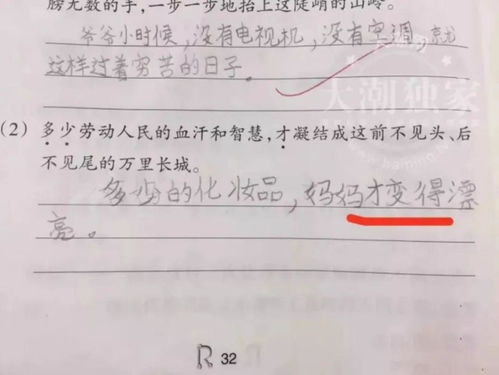 膀无数的手，一步一步地抬上这陡峭的山岭。
爷爷小时候，没有电视机，没有空调，就
这样过着穷苦的日子。
大潮独家
(2) 多少劳动人民的血汗和智慧，才凝结成这前不见头、后
不见尾的万里长城。
多少的化妆品，妈妈才变得漂
亮。
32